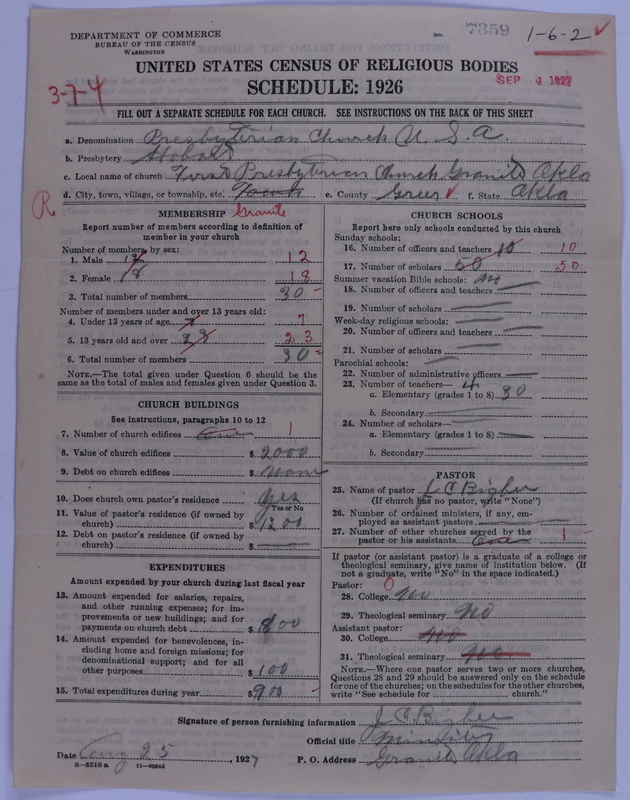 DEPARTMENT OF COMMERCE
BUREAU OF THE CENSUS
WASHINGTON
7359
1-6-2 ✓
UNITED STATES CENSUS OF RELIGIOUS BODIES
SEP 1 1927
SCHEDULE: 1926
3-7-4
FILL OUT A SEPARATE SCHEDULE FOR EACH CHURCH. SEE INSTRUCTIONS ON THE BACK OF THIS SHEET
a. Denomination Presbyterian Church U. S. A.
b. Presbytery Hobart
c. Local name of church First Presbyterian Church Granite Okla
d. City, town, village, or township, etc. Town e. County Greer ✓ f. State Okla
R
MEMBERSHIP Granite
Report number of members according to definition of member in your church
Number of members by sex:
1. Male 12 12
2. Female 18 18
3. Total number of members 30
Number of members under and over 13 years old:
4. Under 13 years of age 7 7
5. 13 years old and over 23 23
6. Total number of members 30
NOTE.—The total given under Question 6 should be the
same as the total of males and females given under Question 3.
CHURCH BUILDINGS
See instructions, paragraphs 10 to 12
7. Number of church edifices One 1
8. Value of church edifices $ 2000
9. Debt on church edifices $ None
10. Does church own pastor's residence yes
Yes or No
11. Value of pastor's residence (if owned by
church) $ 1200
12. Debt on pastor's residence (if owned by
church) $
EXPENDITURES
Amount expended by your church during last fiscal year
13. Amount expended for salaries, repairs,
and other running expenses; for im-
provements or new buildings; and for
payments on church debt $ 800
14. Amount expended for benevolences, in-
cluding home and foreign missions; for
denominational support; and for all
other purposes $ 100
15. Total expenditures during year $ 900
CHURCH SCHOOLS
Report here only schools conducted by this church
Sunday schools:
16. Number of officers and teachers 10 10
17. Number of scholars 50 50
Summer vacation Bible schools: no
18. Number of officers and teachers
19. Number of scholars
Week-day religious schools:
20. Number of officers and teachers
21. Number of scholars
Parochial schools:
22. Number of administrative officers
23. Number of teachers— 4
a. Elementary (grades 1 to 8) 30
b. Secondary
24. Number of scholars—
a. Elementary (grades 1 to 8)
b. Secondary
PASTOR
25. Name of pastor J. C. Bigbee
(If church has no pastor, write "None")
26. Number of ordained ministers, if any, em-
ployed as assistant pastors
27. Number of other churches served by the
pastor or his assistants One 1
If pastor (or assistant pastor) is a graduate of a college or
theological seminary, give name of institution below. (If
not a graduate, write "No" in the space indicated.)
Pastor: 0
28. College No
29. Theological seminary No
Assistant pastor:
30. College No
31. Theological seminary No
NOTE.—Where one pastor serves two or more churches,
Questions 28 and 29 should be answered only on the schedule
for one of the churches; on the schedules for the other churches,
write "See schedule for church."
Signature of person furnishing information J. C. Bigbee
Official title Minister
Date Aug 25, 1927 P. O. Address Granite Okla
8-5518 a